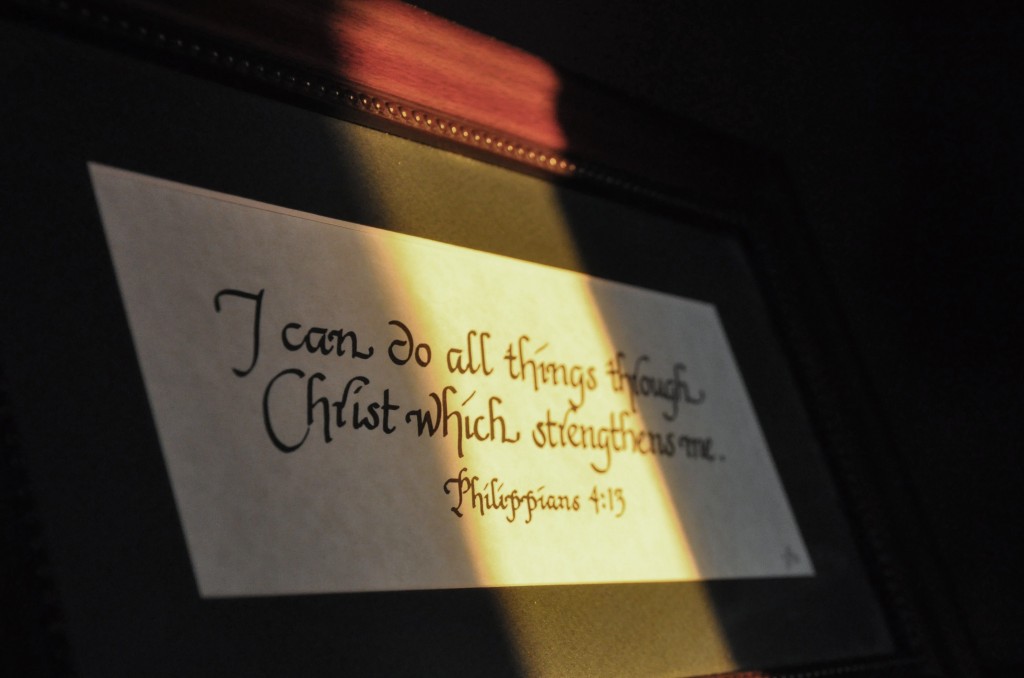 I can do all things through
Christ which strengthens me.
Philippians 4:13